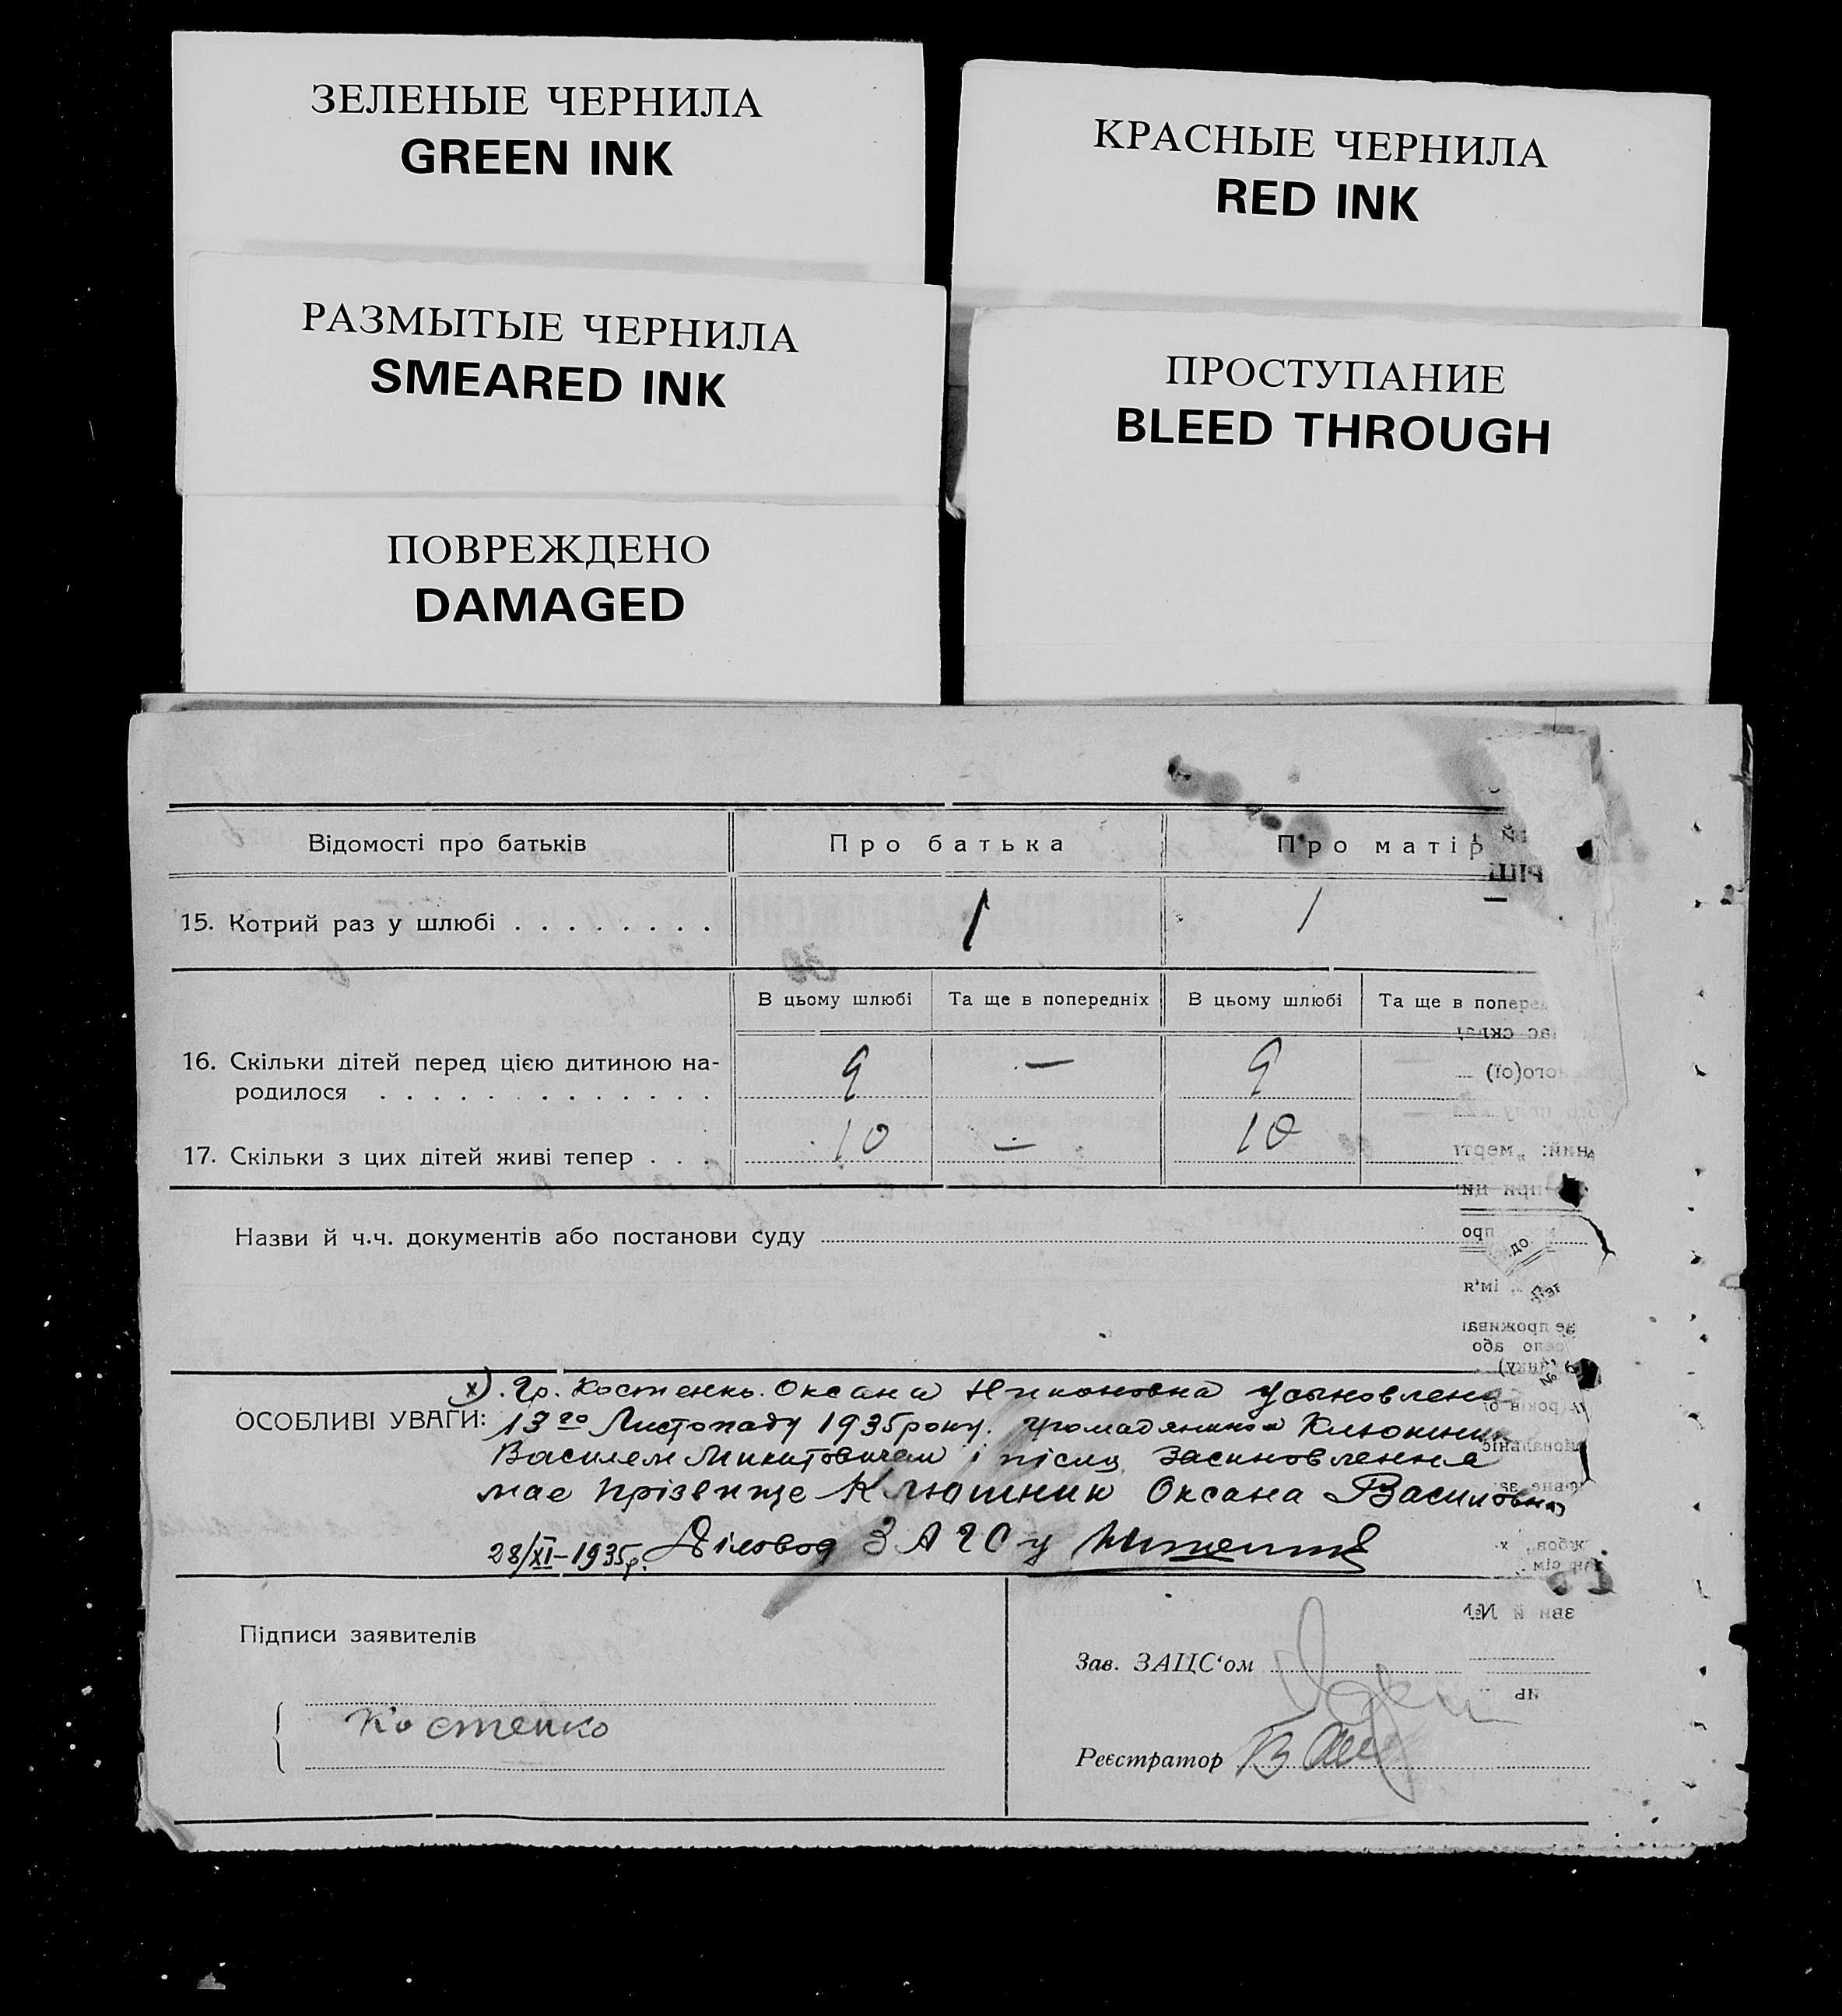 ЗЕЛЕНЫЕ ЧЕРНИЛА
GREEN INK
КРАСНЫЕ ЧЕРНИЛА
RED INK
РАЗМЫТЫЕ ЧЕРНИЛА
SMEARED INK
ПРОСТУПАНИЕ
BLEED THROUGH
ПОВРЕЖДЕНО
DAMAGED
Відомості про батьків Про батька Про матір
15. Котрий раз у шлюбі . . . . . . . . 1 1
В цьому шлюбі Та ще в попередніх В цьому шлюбі Та ще в попере
16. Скільки дітей перед цією дитиною на- 9 — 9 —
родилося . . . . . . . . . . . . .
17. Скільки з цих дітей живі тепер . . . 10 — 10
Назви й ч.ч. документів або постанови суду
х). Гр. Костенко Оксана Никоновна усыновлена
ОСОБЛИВІ УВАГИ: 13го Листопаду 1935 року. громадянином Клюшник
Василем Микитовичем і після засиновлення
має прізвище Клюшник Оксана Василовна
28/XI-1935р. Діловод ЗАГСу
Підписи заявителів
Зав. ЗАЦС'ом
Костенко
Реєстратор